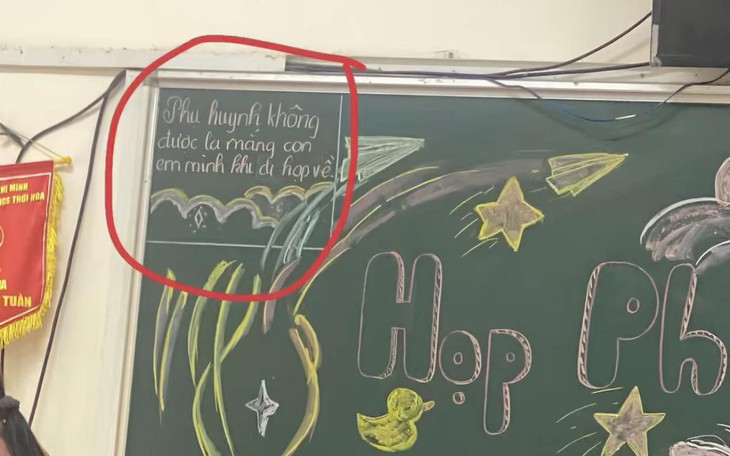 Phụ huynh không
được la mắng con
em mình khi đi họp về.
Họp Ph
HÍ MINH
CS THỚI HÒA
TUẦN